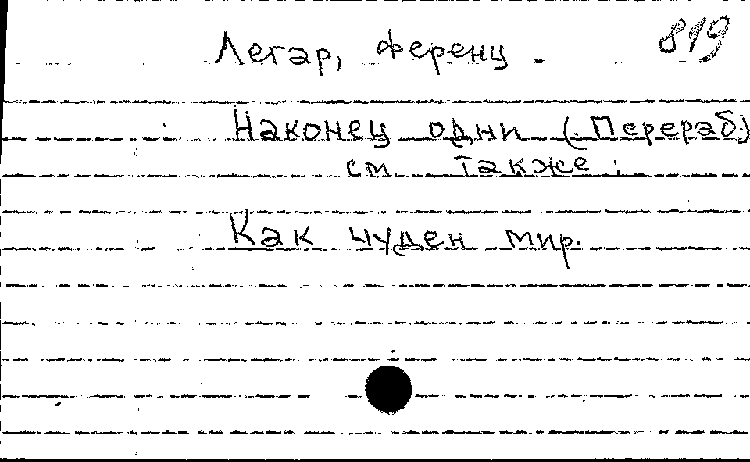 Легар, Ференц. 819
Наконец одни (Перераб.)
см. также:
Как чуден мир.